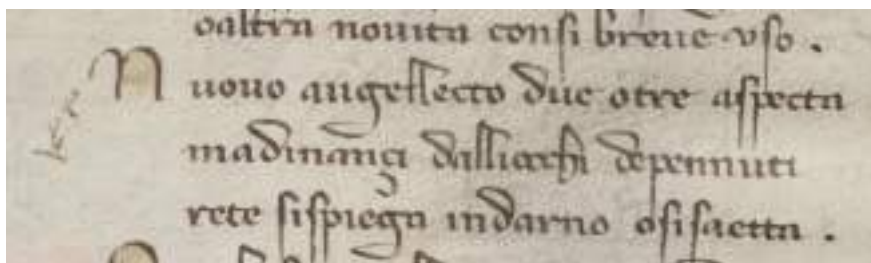 oaltra nouita consi breue vso .
N uouo augellecto due otre aspecta
madinançi dalliocchi depennuti
rete sispiega indarno osisaetta .